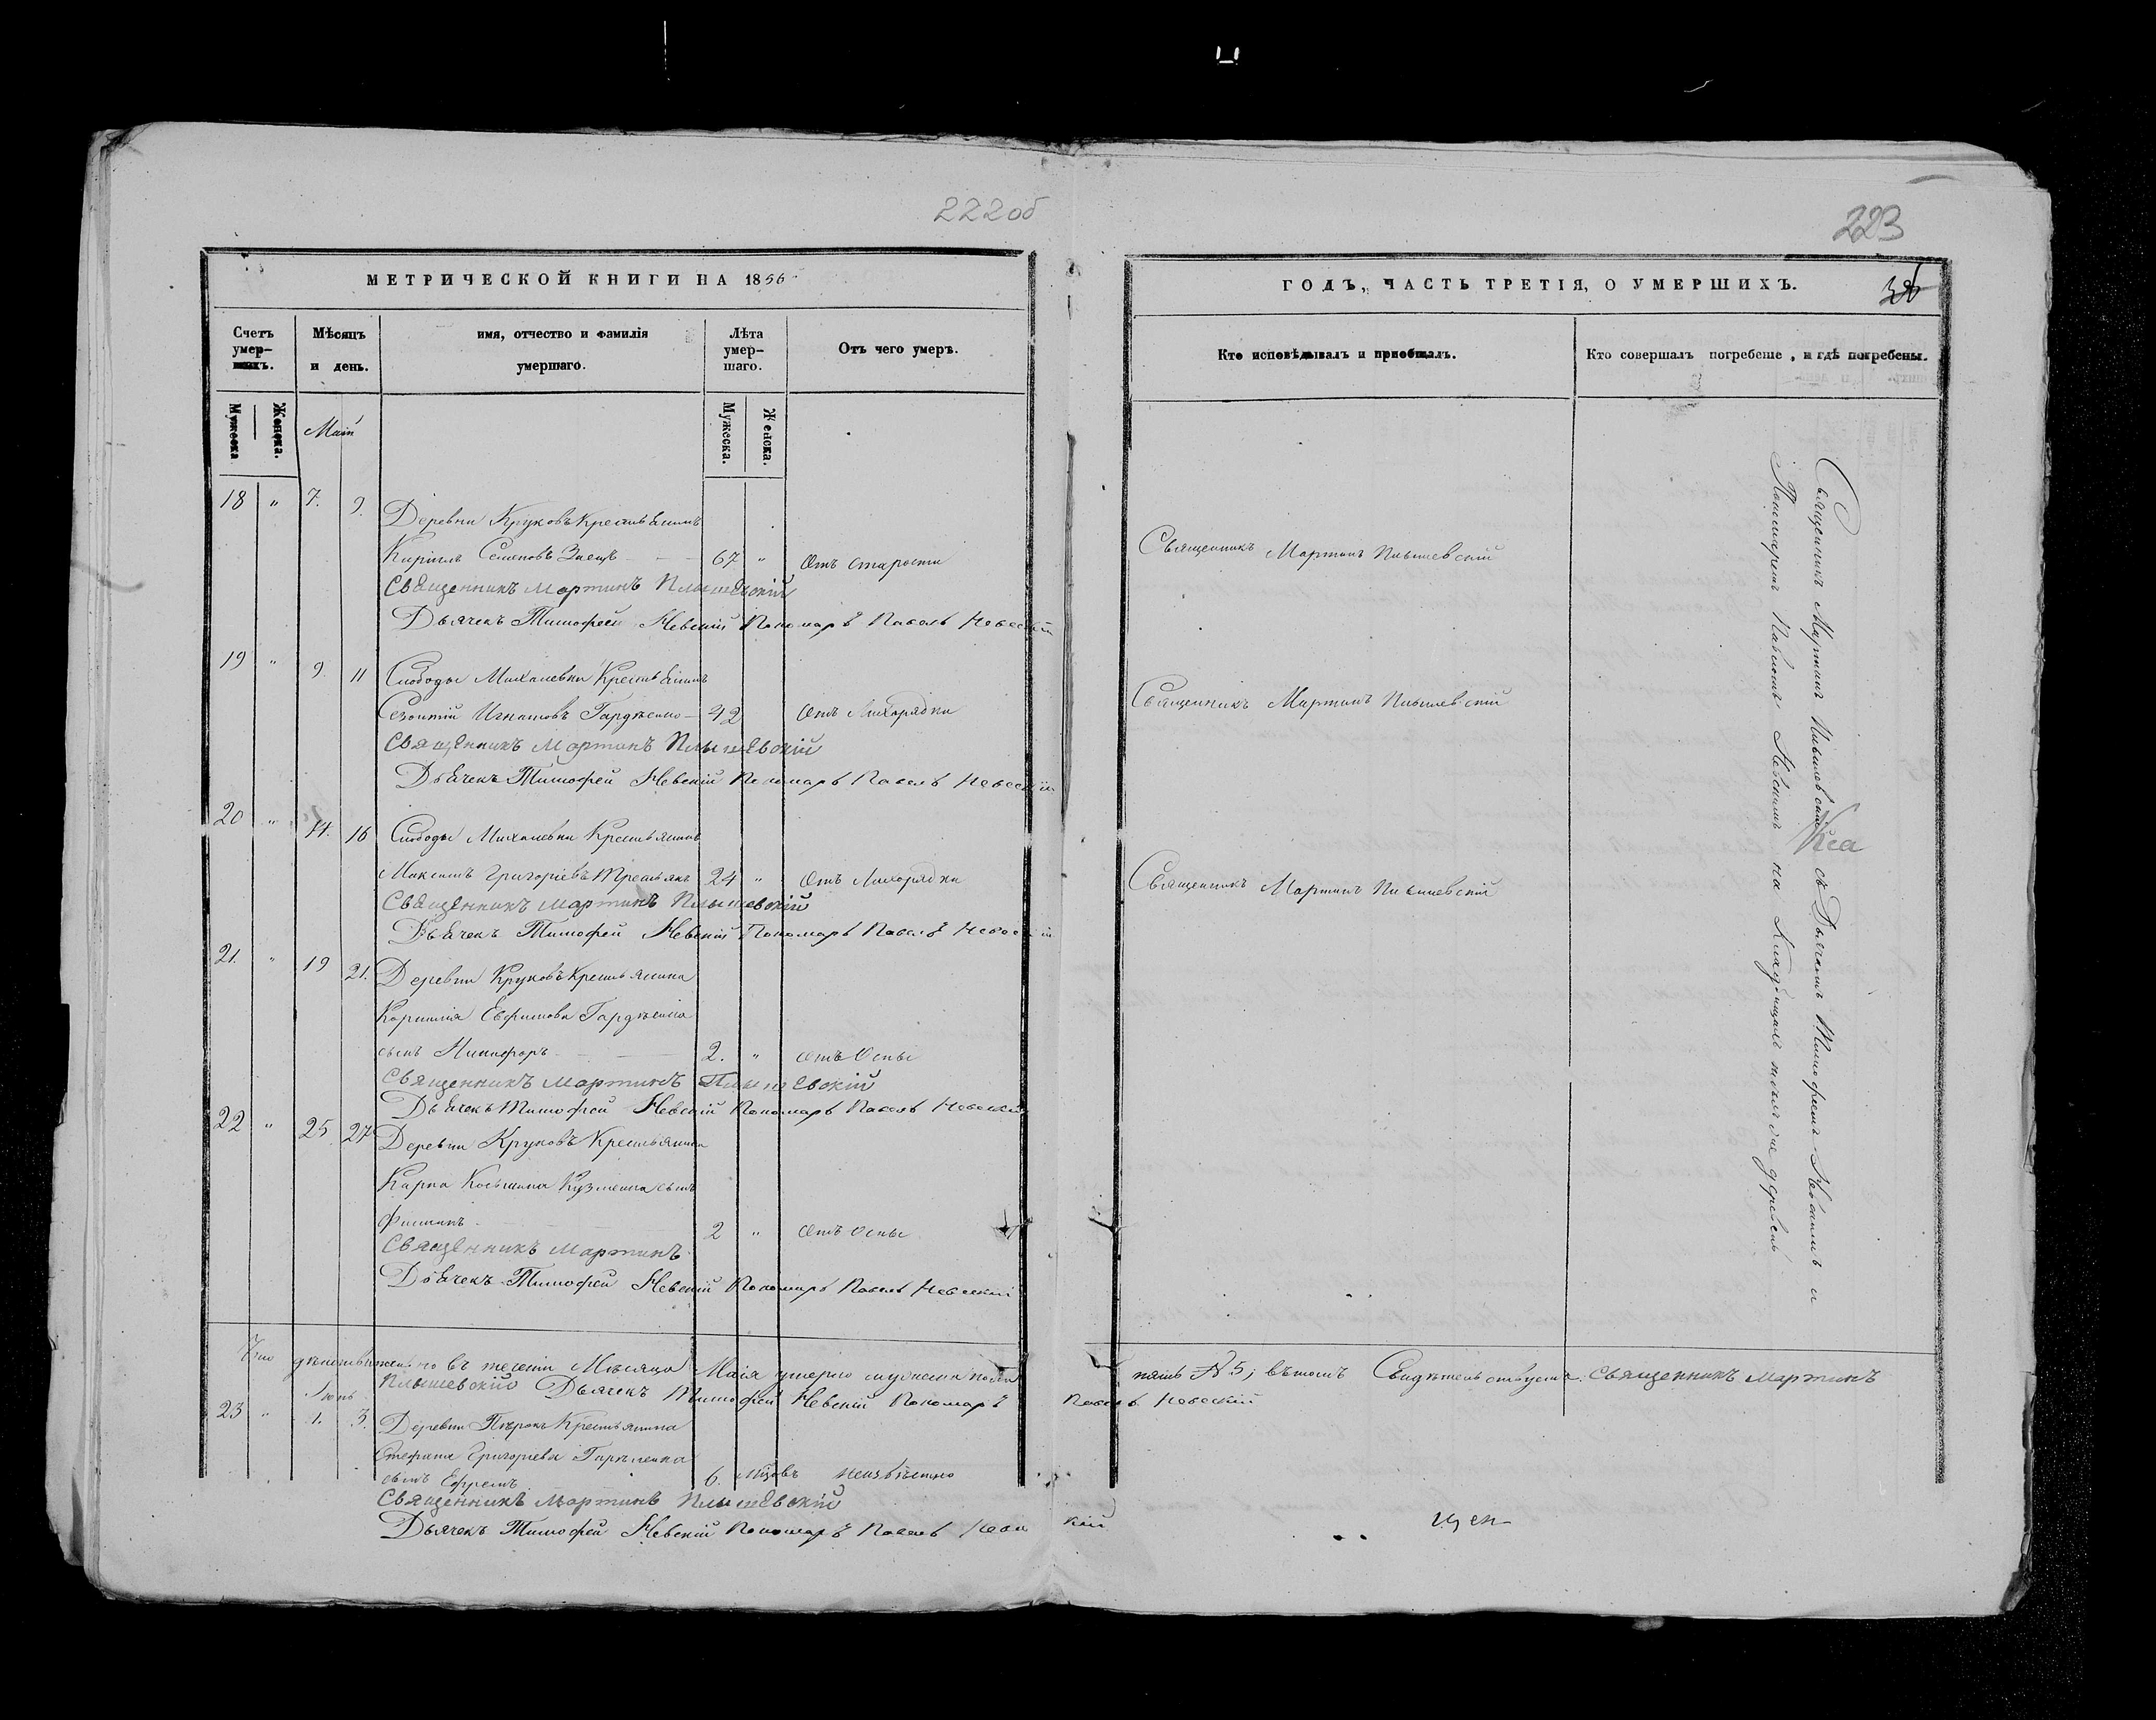 222об
МЕТРИЧЕСКОЙ КНИГИ НА 1856
Счетъ умер-шихъ.
Мѣсяцъ и день.
имя, отчество и фамилія умершаго.
Лѣта умер-шаго.
Отъ чего умеръ.
Мужеска
Женска.
Май
Мужеска.
Женска.
18 " 7. 9.
Деревни Круковъ Крестьянинъ
Кирилъ Семеновъ Заецъ 67 " Отъ старости
Священникъ Мартинъ Плышевскій
Дьячекъ Тимофей Невскій Пономаръ Павелъ Невскій
19 " 9. 11 Слободы Михалевки Крестьянинъ
Игнатовъ 42 Отъ Лихорядки
Священникъ Мартинъ Плышевскій
Дьячекъ Тимофей Невскій Пономаръ Павелъ Невскій
20 " 14. 16 Слободы Михалевки Крестьянинъ
Максимъ Григоріевъ Третьякъ 24 " Отъ Лихорядки
Священникъ Мартинъ Плышевскій
Дьячекъ Тимофей Невскій Пономаръ Павелъ Невскій
21. " 19 21. Деревни Круковъ Крестьянина
Корнилія Евфимова
сынъ Никифоръ 2. " Отъ Оспы
Священникъ Мартинъ Плышевскій
Дьячекъ Тимофей Невскій Пономаръ Павелъ Невскій
22 " 25 27 Деревни Круковъ Крестьянина
Карпа Косьмина Кузменка сынъ
Филипъ 2 " Отъ Оспы
Священникъ Мартинъ
Дьячекъ Тимофей Невскій Пономаръ Павелъ Невскій
Что дѣйствительно въ теченіи Мѣсяца Маія умерло мужеска пола
Плышевскій Дьячекъ Тимофей Невскій Пономаръ
Іюнь
23 " 1. 3. Деревни Крестьянина
Стефана Григорьева
сынъ Ефремъ 6. неизвѣстно
Священникъ Мартинъ Плышевскій
Дьячекъ Тимофей Невскій Пономаръ Павелъ Невс
223
ГОДЪ, ЧАСТЬ ТРЕТІЯ, О УМЕРШИХЪ.
Кто исповѣдывалъ и пріобщалъ.
Кто совершалъ погребеніе, и гдѣ погребены.
Священникъ Мартинъ Плышевскій
Священникъ Мартинъ Плышевскій
Священникъ Мартинъ Плышевскій
Священникъ Мартинъ Плышевскій съ Дьячкомъ Тимофеемъ Невскимъ и
Пономаремъ Павломъ Невскимъ на Кладбищахъ деревень
пять № 5; вътомъ Свидѣтельствуемъ. Священникъ Мартинъ
Павелъ Невскій
кій